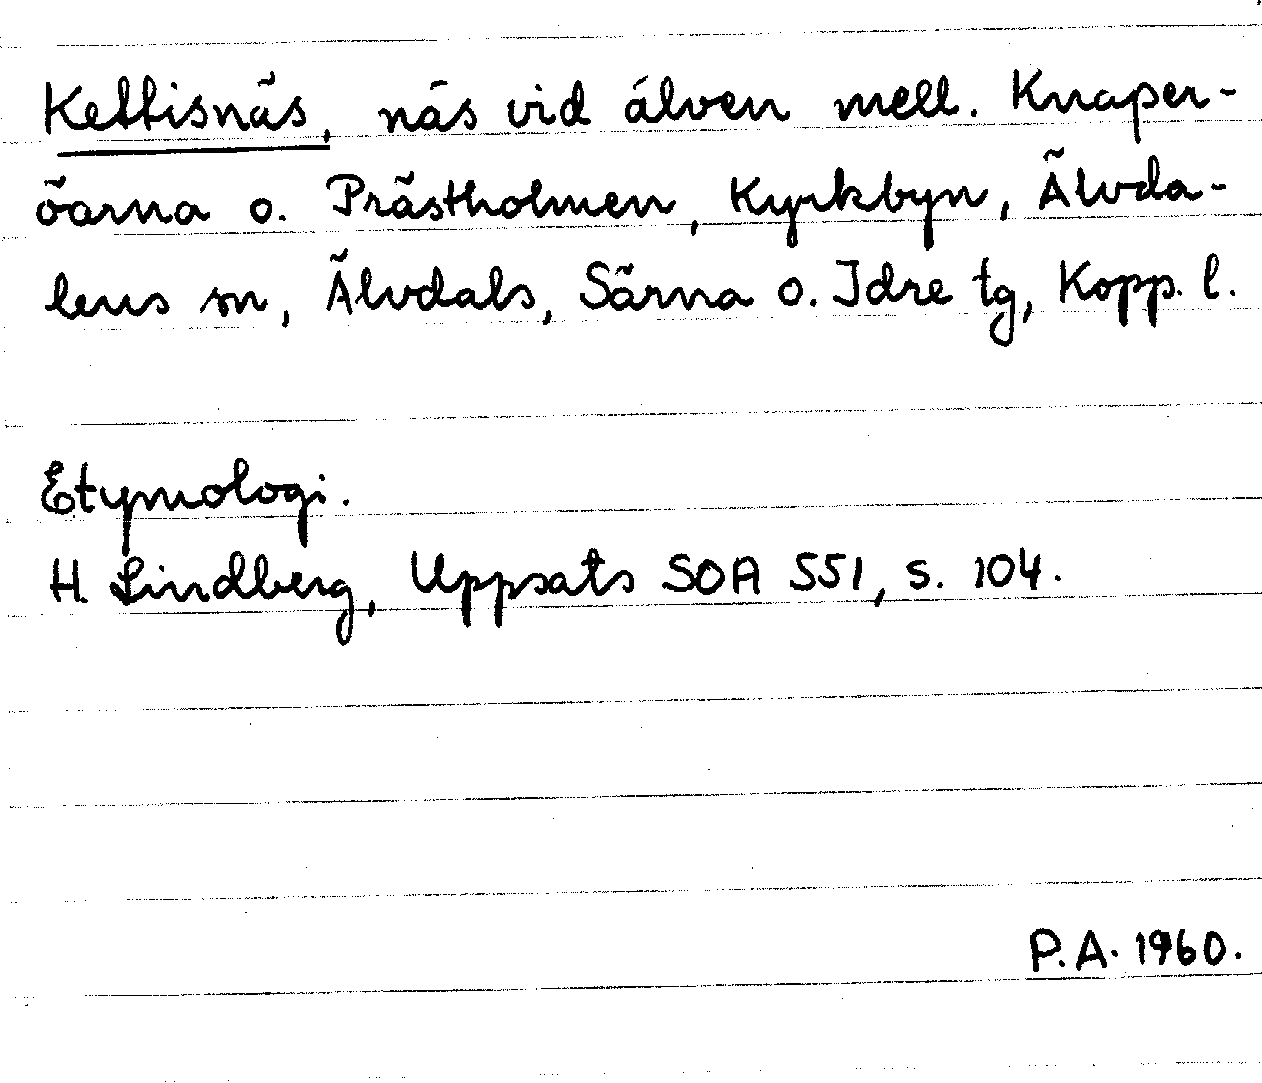 Kettisnäs, näs vid älven mell. Knaper-
öarna o. Prästholmen, Kyrkbyn, Älvda-
lens sn, Älvdals, Särna o. Idre tg, Kopp. l.
Etymologi.
H. Lindberg, Uppsats SOA 551, s. 104.
P.A. 1960.